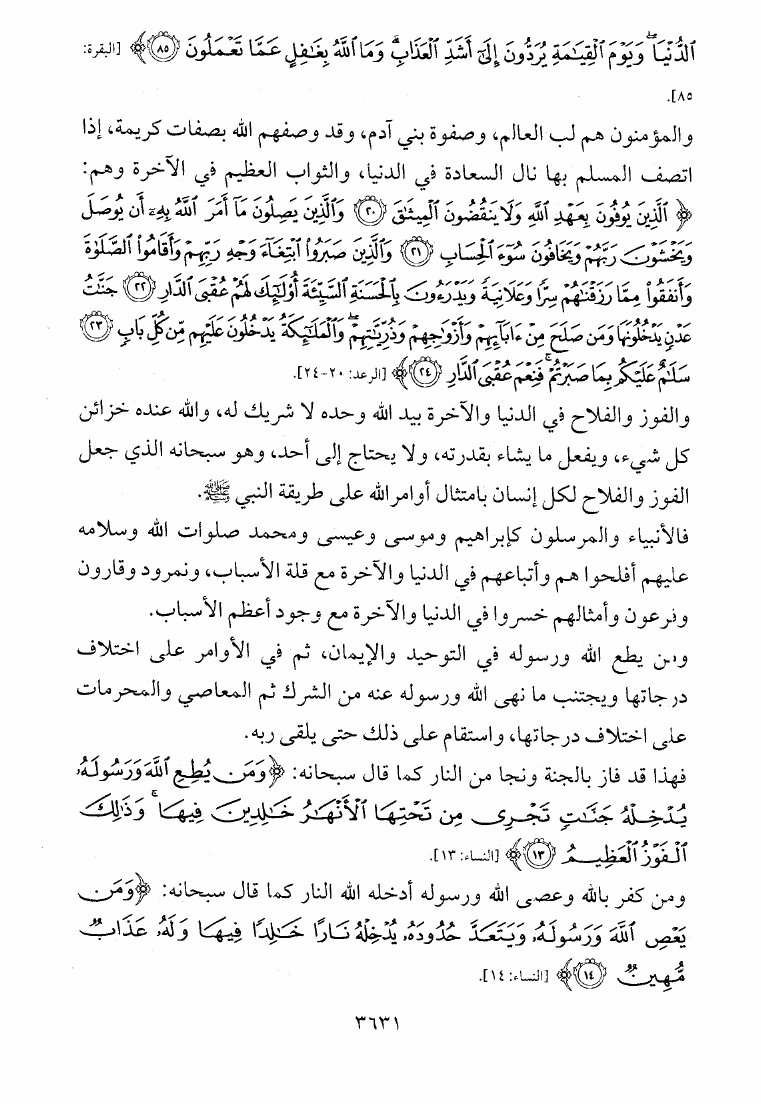 ٱلدُّنْيَا ۖ وَيَوْمَ ٱلْقِيَـٰمَةِ يُرَدُّونَ إِلَىٰٓ أَشَدِّ ٱلْعَذَابِ ۗ وَمَا ٱللَّهُ بِغَـٰفِلٍ عَمَّا تَعْمَلُونَ ﴿٨٥﴾ [البقرة:
٨٥].
والمؤمنون هم لب العالم، وصفوة بني آدم، وقد وصفهم الله بصفات كريمة، إذا
اتصف المسلم بها نال السعادة في الدنيا، والثواب العظيم في الآخرة وهم:
﴿ٱلَّذِينَ يُوفُونَ بِعَهْدِ ٱللَّهِ وَلَا يَنقُضُونَ ٱلْمِيثَـٰقَ ﴿٢٠﴾ وَٱلَّذِينَ يَصِلُونَ مَآ أَمَرَ ٱللَّهُ بِهِۦٓ أَن يُوصَلَ
وَيَخْشَوْنَ رَبَّهُمْ وَيَخَافُونَ سُوٓءَ ٱلْحِسَابِ ﴿٢١﴾ وَٱلَّذِينَ صَبَرُوا۟ ٱبْتِغَآءَ وَجْهِ رَبِّهِمْ وَأَقَامُوا۟ ٱلصَّلَوٰةَ
وَأَنفَقُوا۟ مِمَّا رَزَقْنَـٰهُمْ سِرًّا وَعَلَانِيَةً وَيَدْرَءُونَ بِٱلْحَسَنَةِ ٱلسَّيِّئَةَ أُو۟لَـٰٓئِكَ لَهُمْ عُقْبَى ٱلدَّارِ ﴿٢٢﴾ جَنَّـٰتُ
عَدْنٍ يَدْخُلُونَهَا وَمَن صَلَحَ مِنْ ءَابَآئِهِمْ وَأَزْوَٰجِهِمْ وَذُرِّيَّـٰتِهِمْ ۖ وَٱلْمَلَـٰٓئِكَةُ يَدْخُلُونَ عَلَيْهِم مِّن كُلِّ بَابٍ ﴿٢٣﴾
سَلَـٰمٌ عَلَيْكُم بِمَا صَبَرْتُمْ ۚ فَنِعْمَ عُقْبَى ٱلدَّارِ ﴿٢٤﴾ [الرعد: ٢٠-٢٤].
والفوز والفلاح في الدنيا والآخرة بيد الله وحده لا شريك له، والله عنده خزائن
كل شيء، ويفعل ما يشاء بقدرته، ولا يحتاج إلى أحد، وهو سبحانه الذي جعل
الفوز والفلاح لكل إنسان بامتثال أوامر الله على طريقة النبي ﷺ.
فالأنبياء والمرسلون كإبراهيم وموسى وعيسى ومحمد صلوات الله وسلامه
عليهم أفلحوا هم وأتباعهم في الدنيا والآخرة مع قلة الأسباب، ونمرود وقارون
وفرعون وأمثالهم خسروا في الدنيا والآخرة مع وجود أعظم الأسباب.
ومن يطع الله ورسوله في التوحيد والإيمان، ثم في الأوامر على اختلاف
درجاتها ويجتنب ما نهى الله ورسوله عنه من الشرك ثم المعاصي والمحرمات
على اختلاف درجاتها، واستقام على ذلك حتى يلقى ربه.
فهذا قد فاز بالجنة ونجا من النار كما قال سبحانه: ﴿وَمَن يُطِعِ ٱللَّهَ وَرَسُولَهُۥ
يُدْخِلْهُ جَنَّـٰتٍ تَجْرِى مِن تَحْتِهَا ٱلْأَنْهَـٰرُ خَـٰلِدِينَ فِيهَا ۚ وَذَٰلِكَ
ٱلْفَوْزُ ٱلْعَظِيمُ ﴿١٣﴾ [النساء: ١٣].
ومن كفر بالله وعصى الله ورسوله أدخله الله النار كما قال سبحانه: ﴿وَمَن
يَعْصِ ٱللَّهَ وَرَسُولَهُۥ وَيَتَعَدَّ حُدُودَهُۥ يُدْخِلْهُ نَارًا خَـٰلِدًا فِيهَا وَلَهُۥ عَذَابٌ
مُّهِينٌ ﴿١٤﴾ [النساء: ١٤].
٣٦٣١